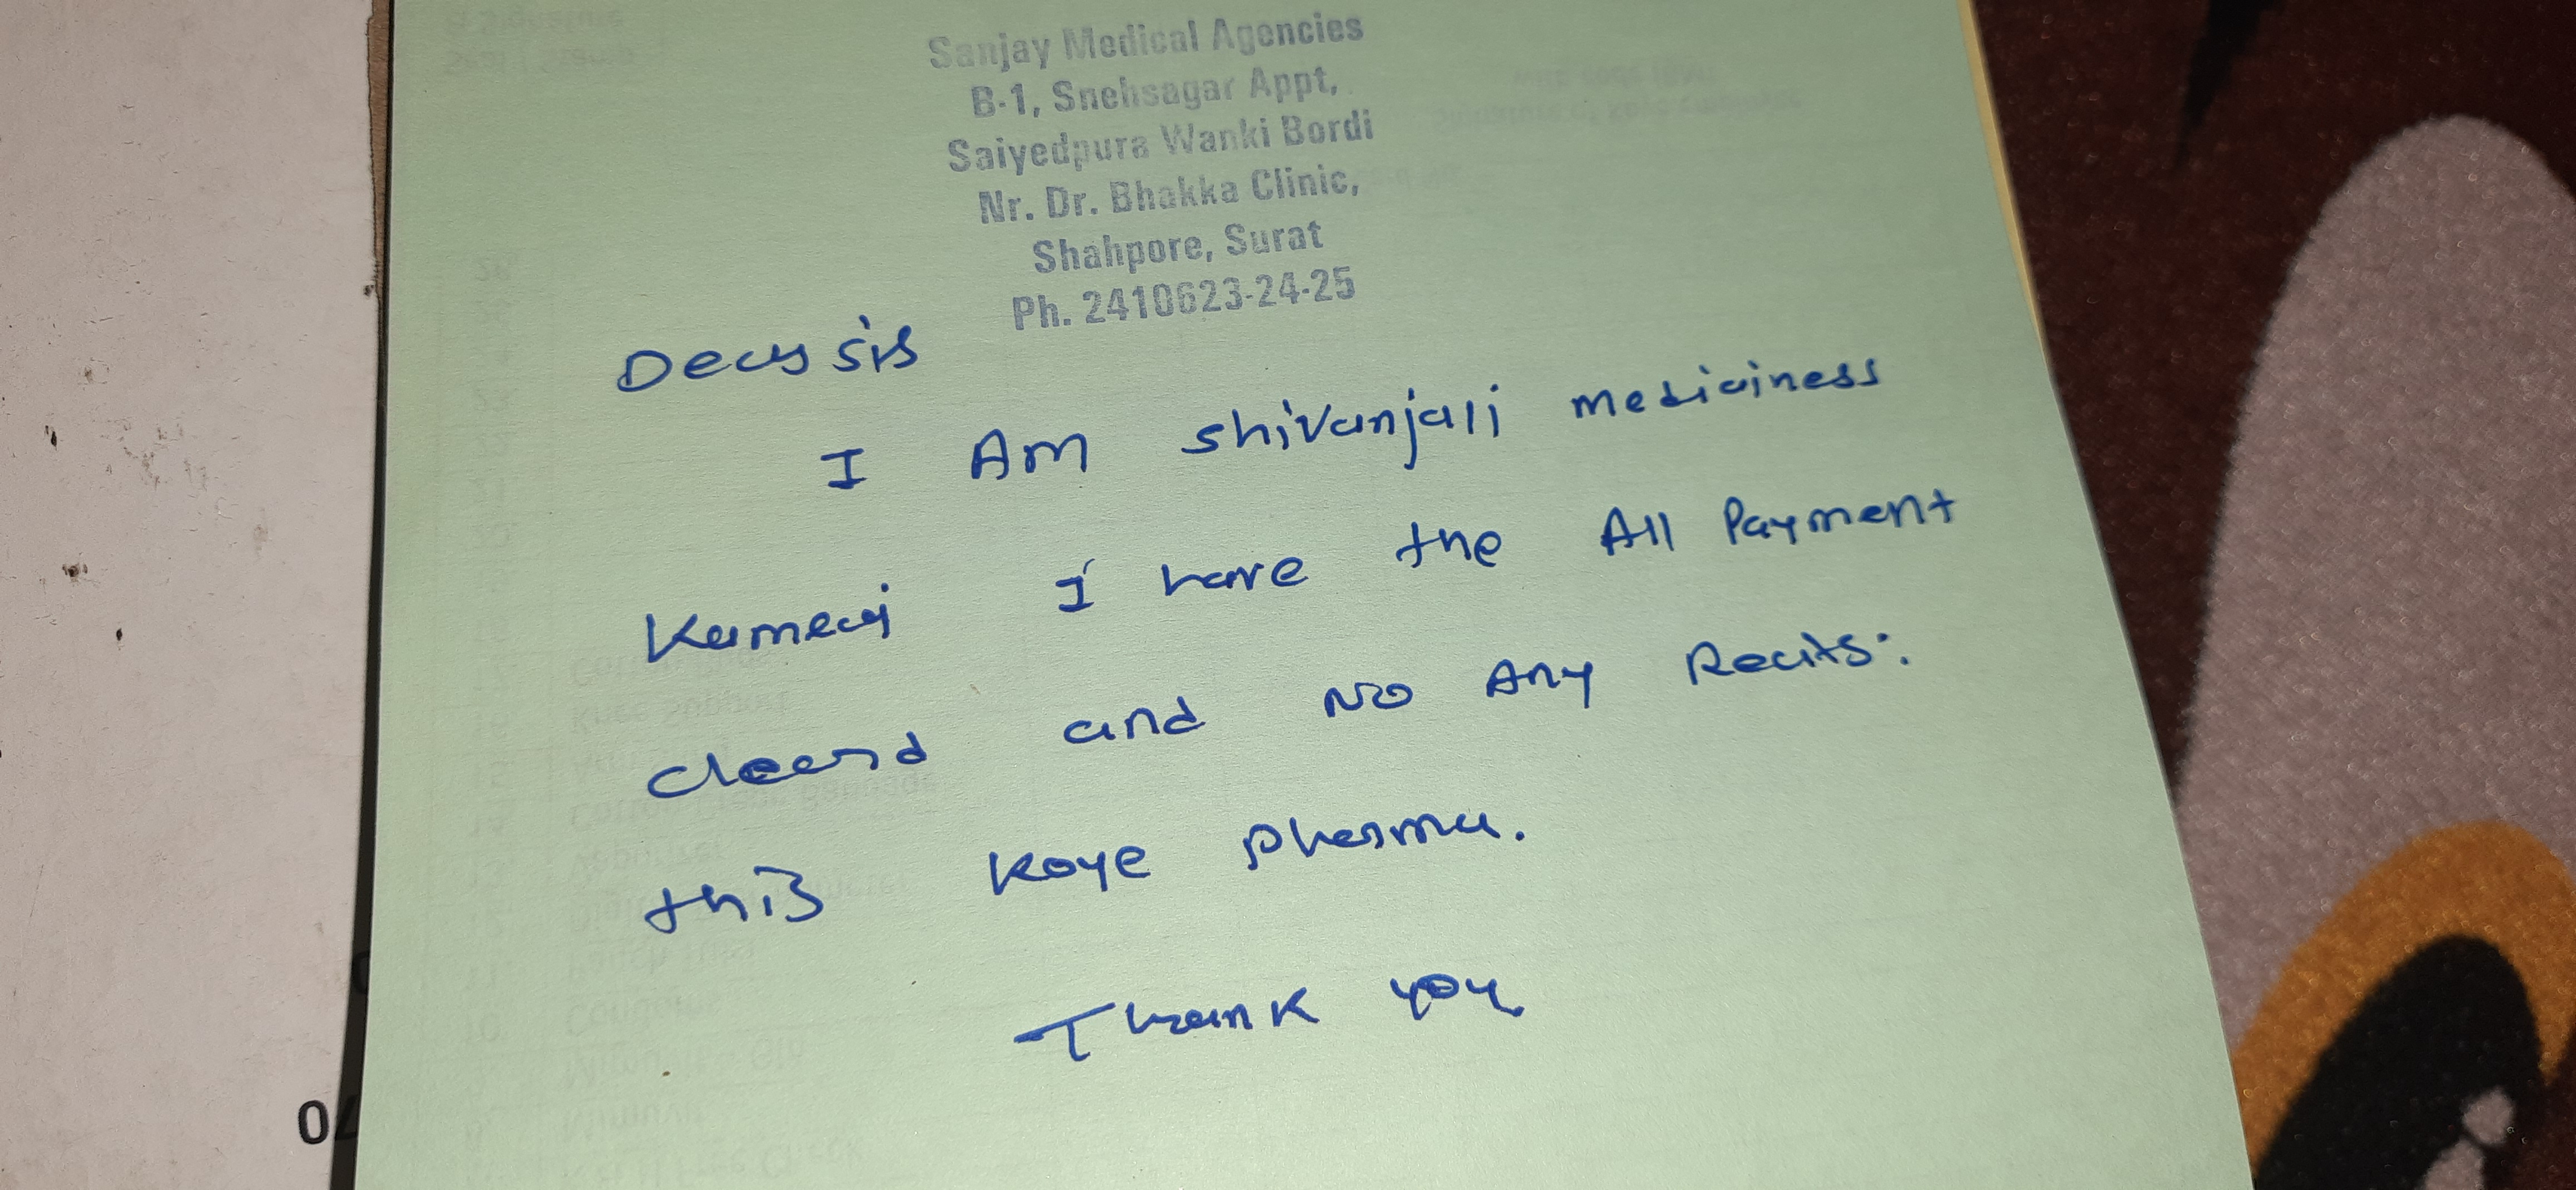 Sanjay Medical Agencies
B-1, Snehsagar Appt,
Saiyedpura Wanki Bordi
Nr. Dr. Bhakka Clinic,
Shahpore, Surat
Ph. 2410623-24-25
I Am shivanjali mediciness
Kamrej I have the All Payment
cleard and NO Any
this Koye pharma.
Thank you